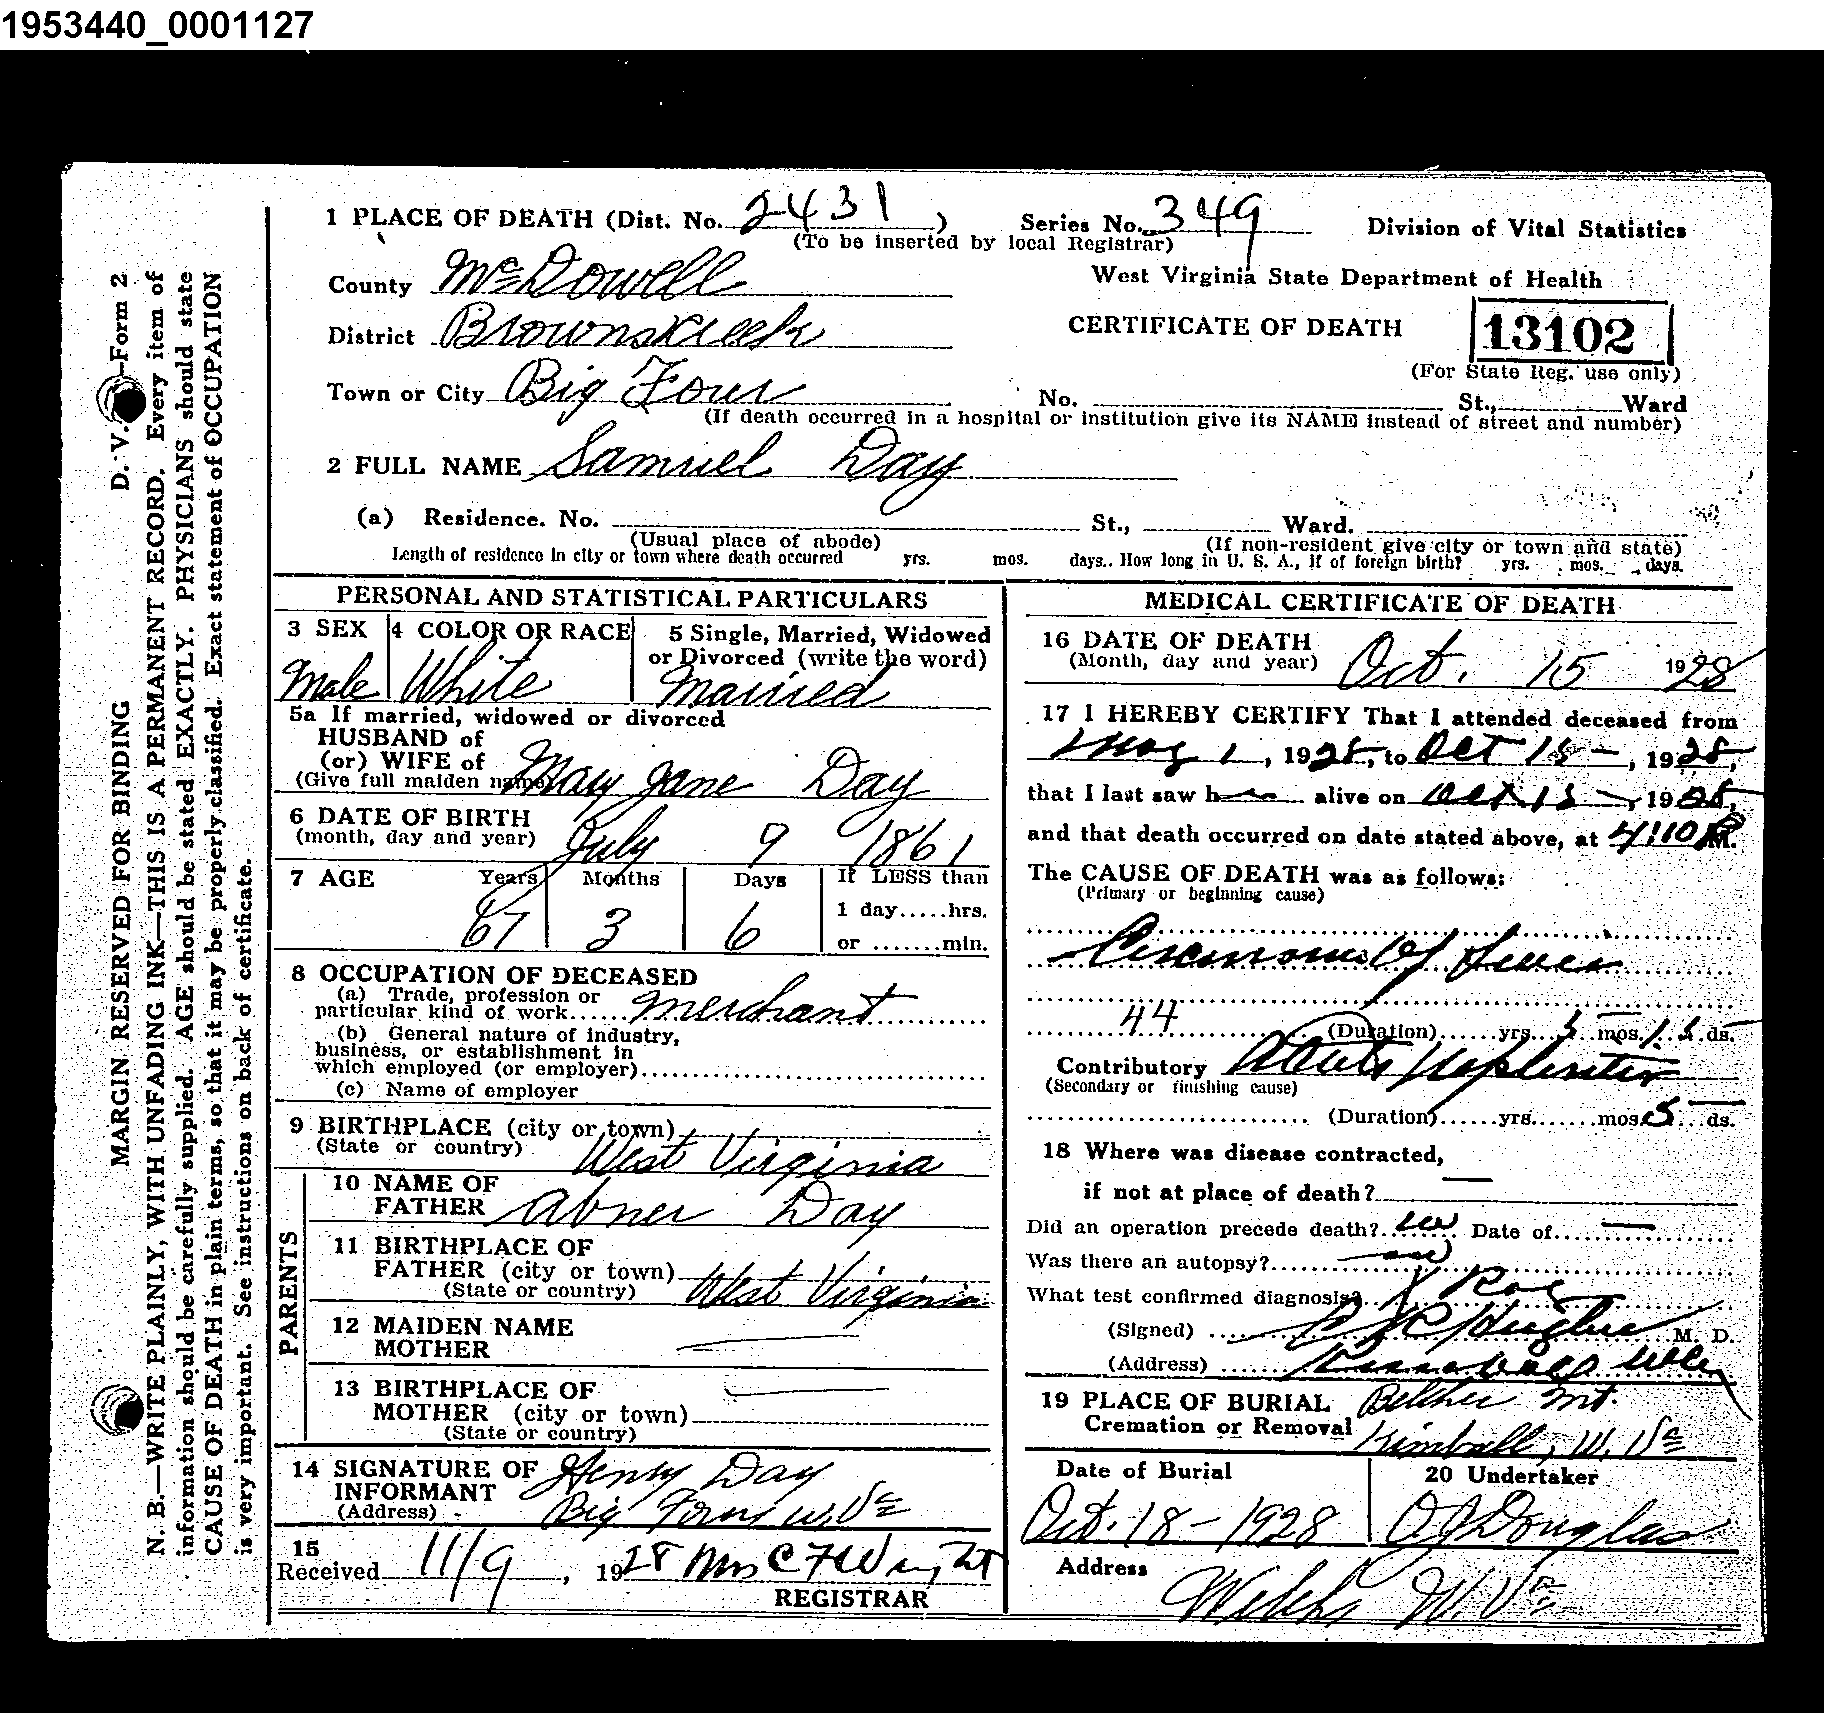 1953440_0001127
1 PLACE OF DEATH (Dist. No. 2431 ) Series No. 349 Division of Vital Statistics
(To be inserted by local Registrar)
County McDowell West Virginia State Department of Health
District Brownskreek CERTIFICATE OF DEATH 13102
(For State Reg. use only)
Town or City Big Four No. St., Ward
(If death occurred in a hospital or institution give its NAME instead of street and number)
2 FULL NAME Samuel Day
(a) Residence. No. St., Ward.
(Usual place of abode) (If non-resident give city or town and state)
Length of residence in city or town where death occurred yrs. mos. days. How long in U. S. A., if of foreign birth? yrs. mos. days.
PERSONAL AND STATISTICAL PARTICULARS
3 SEX 4 COLOR OR RACE 5 Single, Married, Widowed
or Divorced (write the word)
Male White Married
5a If married, widowed or divorced
HUSBAND of
(or) WIFE of
(Give full maiden name) May Jane Day
6 DATE OF BIRTH
(month, day and year) July 9 1861
7 AGE Years Months Days If LESS than
1 day.....hrs.
67 3 6 or .......min.
8 OCCUPATION OF DECEASED
(a) Trade, profession or
particular kind of work...... Merchant
(b) General nature of industry,
business, or establishment in
which employed (or employer)
(c) Name of employer
9 BIRTHPLACE (city or town)
(State or country) West Virginia
PARENTS
10 NAME OF
FATHER Abner Day
11 BIRTHPLACE OF
FATHER (city or town)
(State or country) West Virginia
12 MAIDEN NAME
MOTHER
13 BIRTHPLACE OF
MOTHER (city or town)
(State or country)
14 SIGNATURE OF
INFORMANT Henry Day
(Address) Big Four W. Va
15
Received 11/9, 1928 Mrs C F Wright
REGISTRAR
MEDICAL CERTIFICATE OF DEATH
16 DATE OF DEATH
(Month, day and year) Oct. 15 1928
17 I HEREBY CERTIFY That I attended deceased from
May 1, 1928, to Oct 15, 1928,
that I last saw h alive on Oct 15, 1928,
and that death occurred on date stated above, at 4:10 P M.
The CAUSE OF DEATH was as follows:
(Primary or beginning cause)
Carcinoma of Liver
44 (Duration)......yrs. 5 mos. 15 ds.
Contributory Acute Nephritis
(Secondary or finishing cause)
(Duration)......yrs.......mos. 5 ds.
18 Where was disease contracted,
if not at place of death?
Did an operation precede death? no Date of
Was there an autopsy? no
What test confirmed diagnosis? X Ray
(Signed) Hughes M. D.
(Address) Kimball W Va
19 PLACE OF BURIAL Belcher Mt.
Cremation or Removal Kimball, W. Va
Date of Burial 20 Undertaker
Oct. 18 - 1928 O J Douglas
Address Welch W. Va
D. V. -Form 2
MARGIN RESERVED FOR BINDING
N. B.—WRITE PLAINLY, WITH UNFADING INK—THIS IS A PERMANENT RECORD. Every item of
information should be carefully supplied. AGE should be stated EXACTLY. PHYSICIANS should state
CAUSE OF DEATH in plain terms, so that it may be properly classified. Exact statement of OCCUPATION
is very important. See instructions on back of certificate.